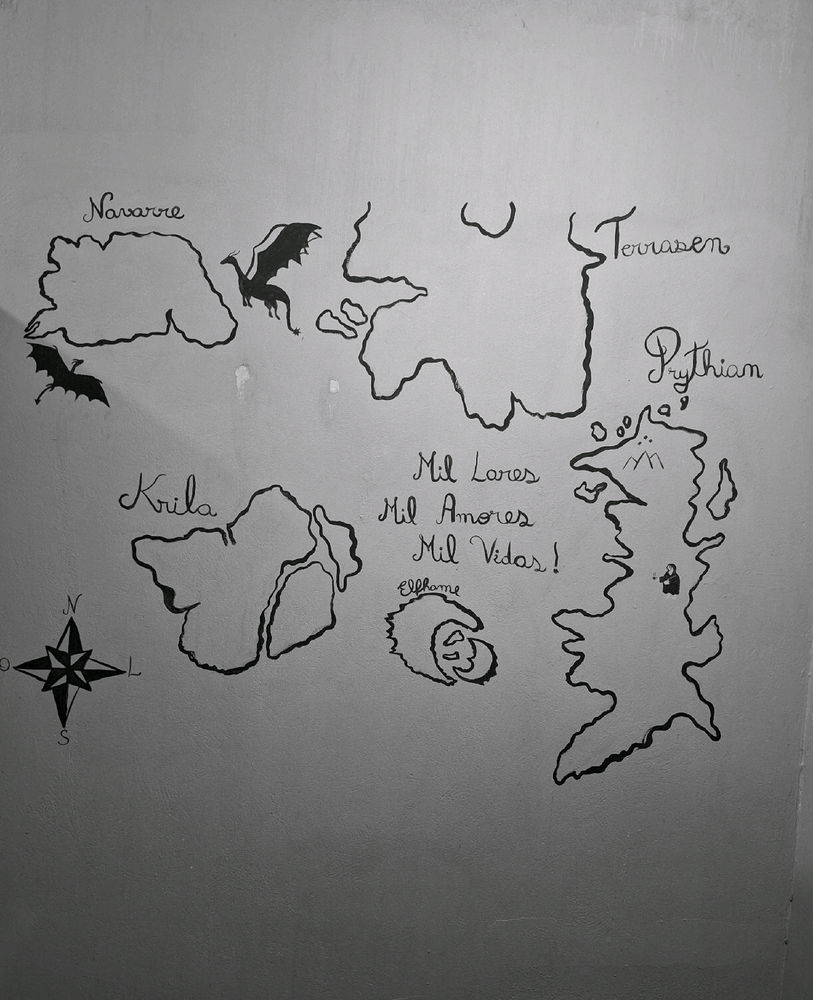 Navarre
Terrasen
Prythian
Mil Lares
Mil Amores
Mil Vidas!
Krila
Elfhame
N
O
L
S